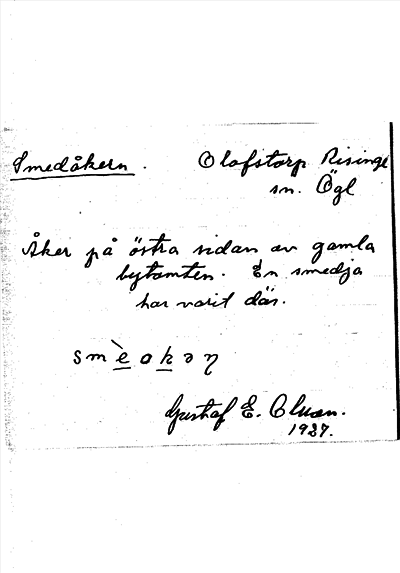 Smedåkern. Olofstorp Risinge
sn. Ögl
Åker på östra sidan av gamla
bytomten. En smedja
har varit där.
smèokən
Gustaf E. Olsson.
1927.